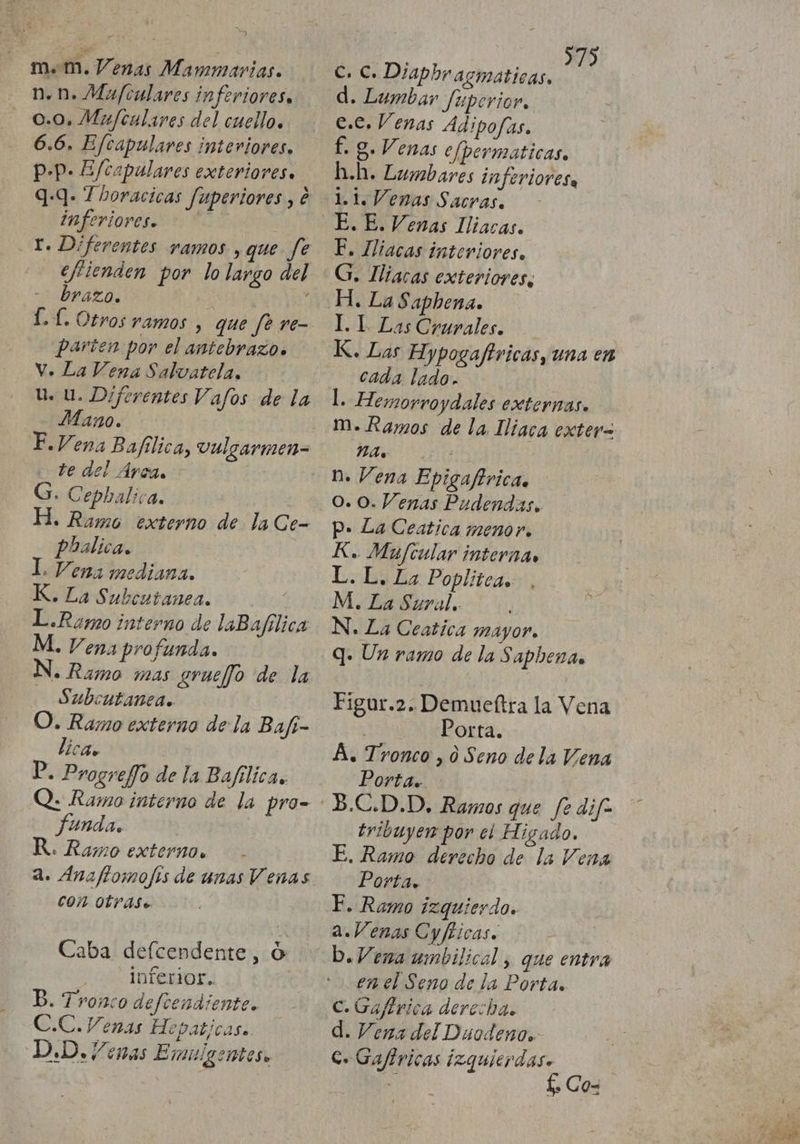 575
m.m. Venas Mammarias.
n.n. Muſculares inferiores.
o.o. Muſculares del cuello.
6.6. Eſcapulares interiores.
p.p. Eſcapulares exteriores.
q.q. Thoracicas ſuperiores, è
inferiores.
r. Diferentes ramos, que ſe
eſtienden por lo largo del
brazo.
ſ.ſ. Otros ramos, que ſe re-
parten por el antebrazo.
v. La Vena Salvatela.
u. u. Diferentes Vaſos de la
Mano.
F. Vena Baſilica, vulgarmen-
te del Arca.
G. Cephalica.
H. Ramo externo de la Ce-
phalica.
I. Vena mediana.
K. La Subcutanea.
L. Ramo interno de la Baſilica
M. Vena profunda.
N. Ramo mas grueſſo de la
Subcutanea.
O. Ramo externo de la Baſi-
lica.
P. Progreſſo de la Baſilica.
Q. Ramo interno de la pro-
funda.
R. Ramo externo.
a. Anaſtomoſis de unas Venas
con otras.
Caba deſcendente, ò
inferior.
B. Tronco deſcendiente.
C.C. Venas Hepaticas.
D.D. Venas Emulgentes.
c. c. Diaphragmaticas.
d. Lumbar ſuperior.
e.e. Venas Adipoſas.
f. g. Venas eſpermaticas.
h.h. Lumbares inferiores.
i. i. Venas Sacras.
E. E. Venas Iliacas.
F. Iliacas interiores.
G. Iliacas exteriores.
H. La Saphena.
I. I. Las Crurales.
K. Las Hypogaſtricas, una en
cada lado.
l. Hemorroydales externas.
m. Ramos de la Iliaca exter-
na.
n. Vena Epigaſtrica.
o. o. Venas Pudendas.
p. La Ceatica menor.
K. Muſcular interna.
L. L. La Poplitea.
M. La Sural.
N. La Ceatica mayor.
q. Un ramo de la Saphena.
Figur.2. Demueſtra la Vena
Porta.
A. Tronco, ò Seno de la Vena
Porta.
B.C.D.D. Ramos que ſe diſ-
tribuyen por el Higado.
E. Ramo derecho de la Vena
Porta.
F. Ramo izquierdo.
a. Venas Cyſticas.
b. Vena umbilical, que entra
en el Seno de la Porta.
c. Gaſtrica derecha.
d. Vena del Duodeno.
e. Gaſtricas izquierdas.
f. Co-